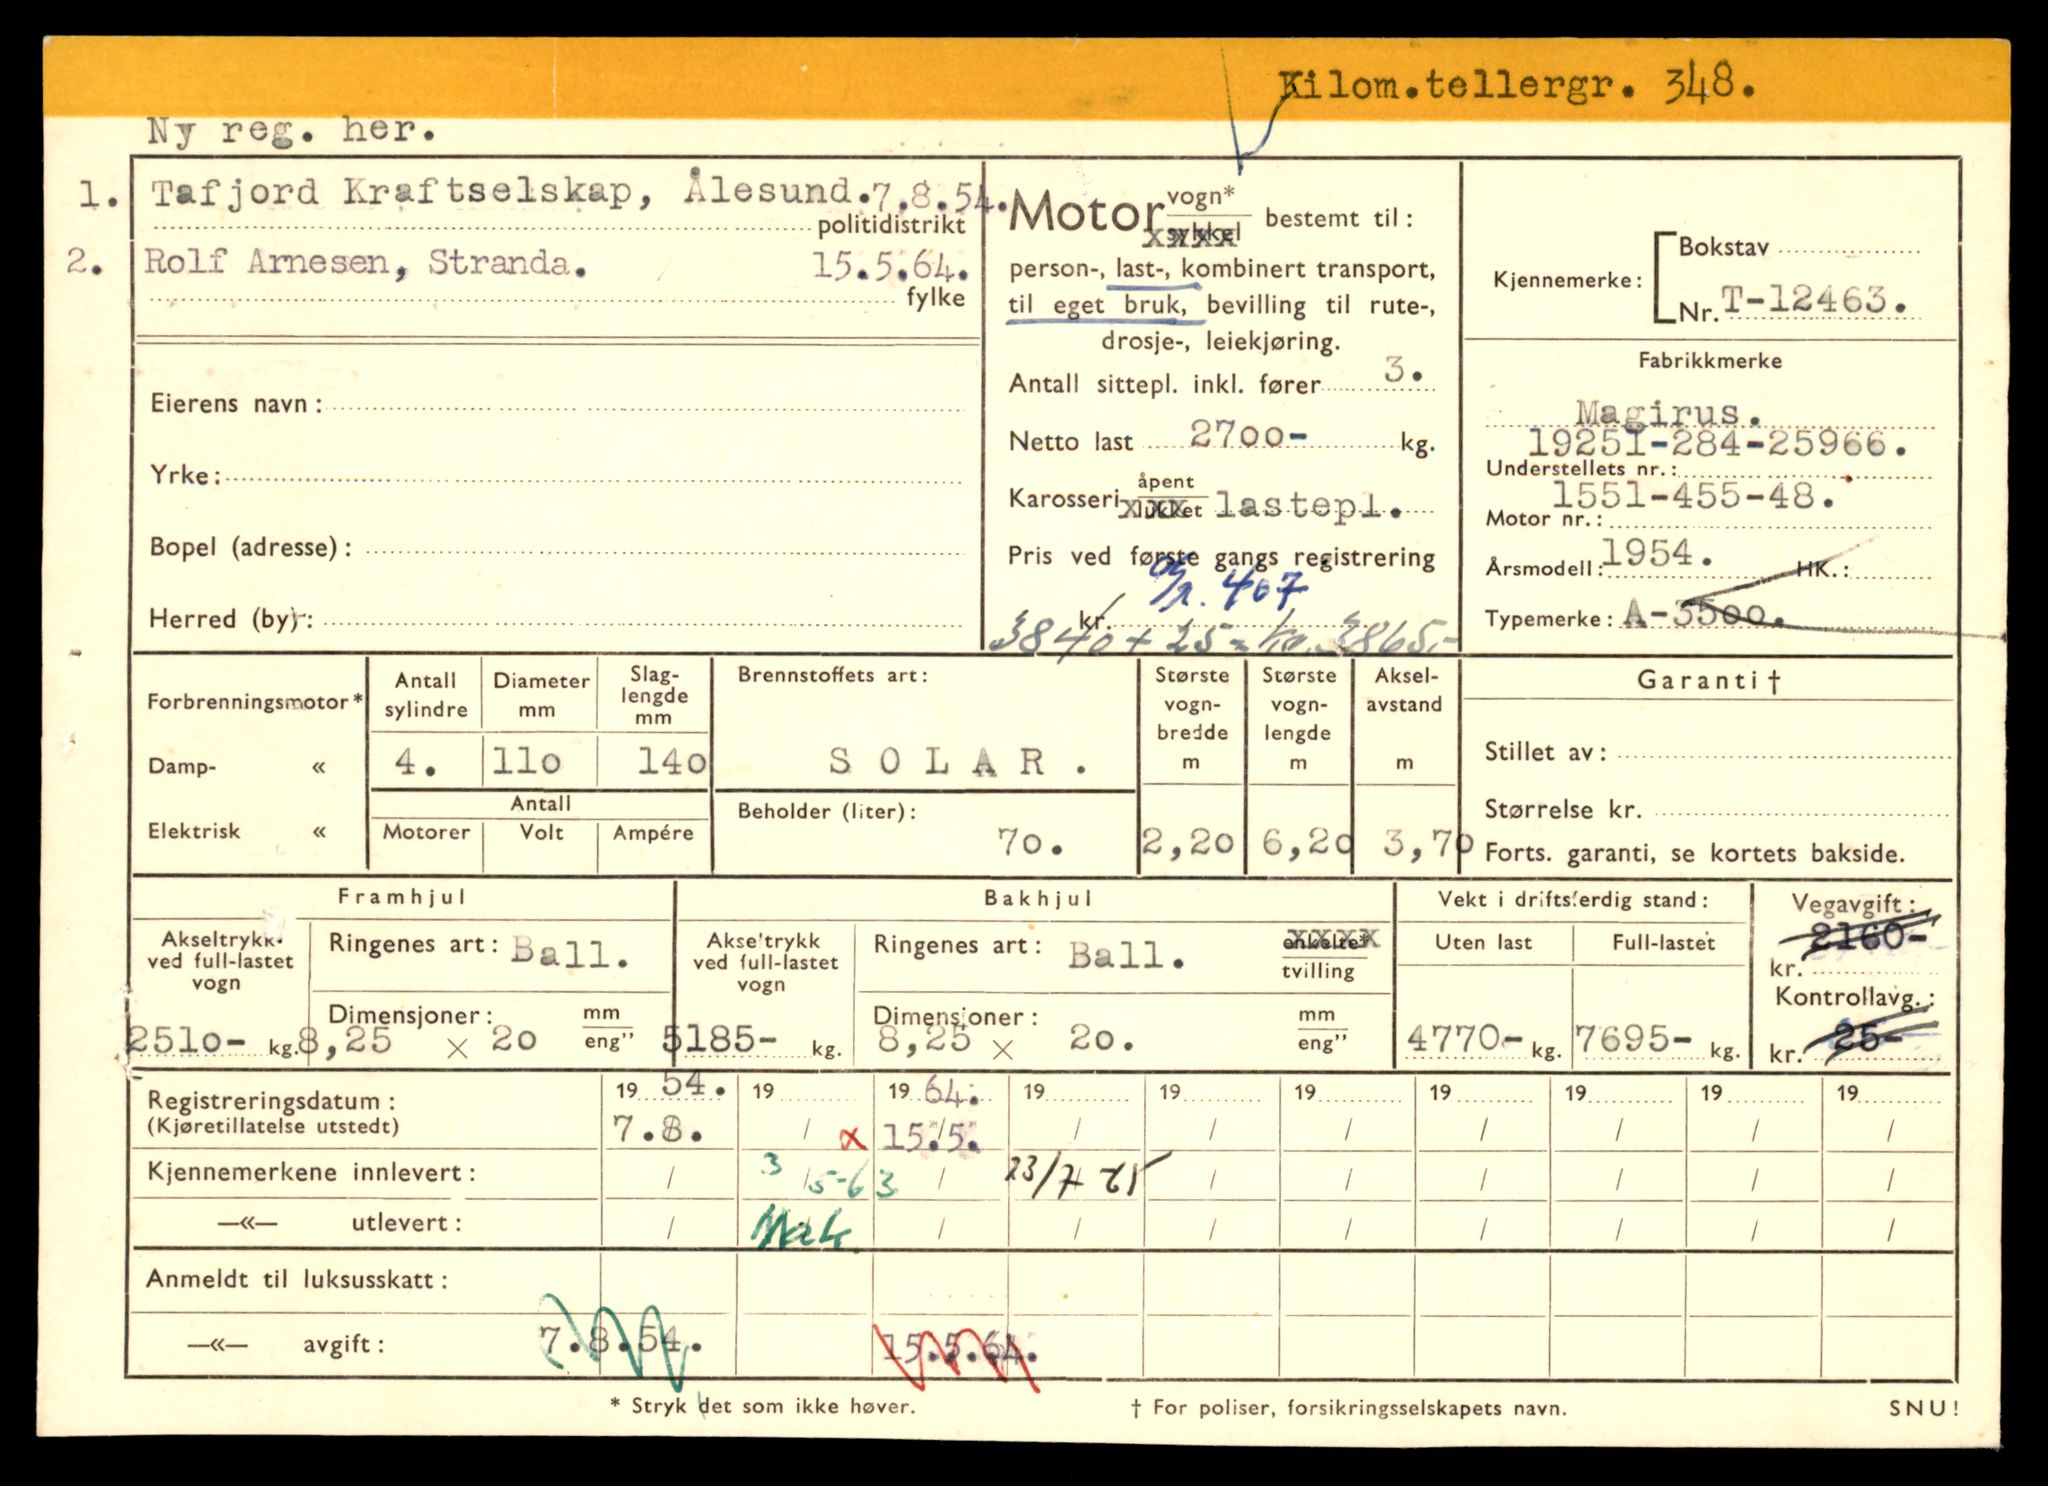 Kilom.tellergr. 348.
Ny reg. her.
1. Tafjord Kraftselskap, Ålesund. 7.8.54.
politidistrikt
2. Rolf Arnesen, Stranda. 15.5.64.
fylke
Eierens navn:
Yrke:
Bopel (adresse):
Herred (by):
Motor vogn* sykkel bestemt til:
person-, last-, kombinert transport,
til eget bruk, bevilling til rute-,
drosje-, leiekjøring.
Antall sittepl. inkl. fører 3.
Netto last 2700- kg.
Karosseri åpent lukket lastepl.
Pris ved første gangs registrering
407
kr.
3840 + 25 = kr. 3865,-
Kjennemerke: Bokstav
Nr. T-12463.
Fabrikkmerke
Magirus.
19251-284-25966.
Understellets nr.:
1551-455-48.
Motor nr.:
Årsmodell: 1954. HK.:
Typemerke: A-3500.
Forbrenningsmotor*
Damp- «
Elektrisk «
Antall sylindre
Diameter mm
Slag-lengde mm
4. 110 140
Antall
Motorer Volt Ampére
Brennstoffets art:
SOLAR.
Beholder (liter):
70.
Største vogn-bredde m
2,20
Største vogn-lengde m
6,20
Aksel-avstand m
3,70
Garanti †
Stillet av:
Størrelse kr.
Forts. garanti, se kortets bakside.
Framhjul
Akseltrykk ved full-lastet vogn
2510- kg.
Ringenes art: Ball.
Dimensjoner: mm eng"
8,25 × 20
Bakhjul
Akseltrykk ved full-lastet vogn
5185- kg.
Ringenes art: Ball. enkelte* xxxx tvilling
Dimensjoner: mm eng"
8,25 × 20.
Vekt i driftsferdig stand:
Uten last Full-lastet
4770- kg. 7695- kg.
Vegavgift:
2160-
kr.
Kontrollavg.:
kr. 25-
19 54. 19 19 64. 19 19 19 19 19 19 19
Registreringsdatum:
(Kjøretillatelse utstedt) 7.8. / x 15.5. / / / / / / /
Kjennemerkene innlevert: / 3/5-63 / 23/7 65 / / / / / /
—«— utlevert: / Mak. / / / / / / /
Anmeldt til luksusskatt:
—«— avgift: 7.8.54. 15.5.64.
* Stryk det som ikke høver.
† For poliser, forsikringsselskapets navn.
SNU!